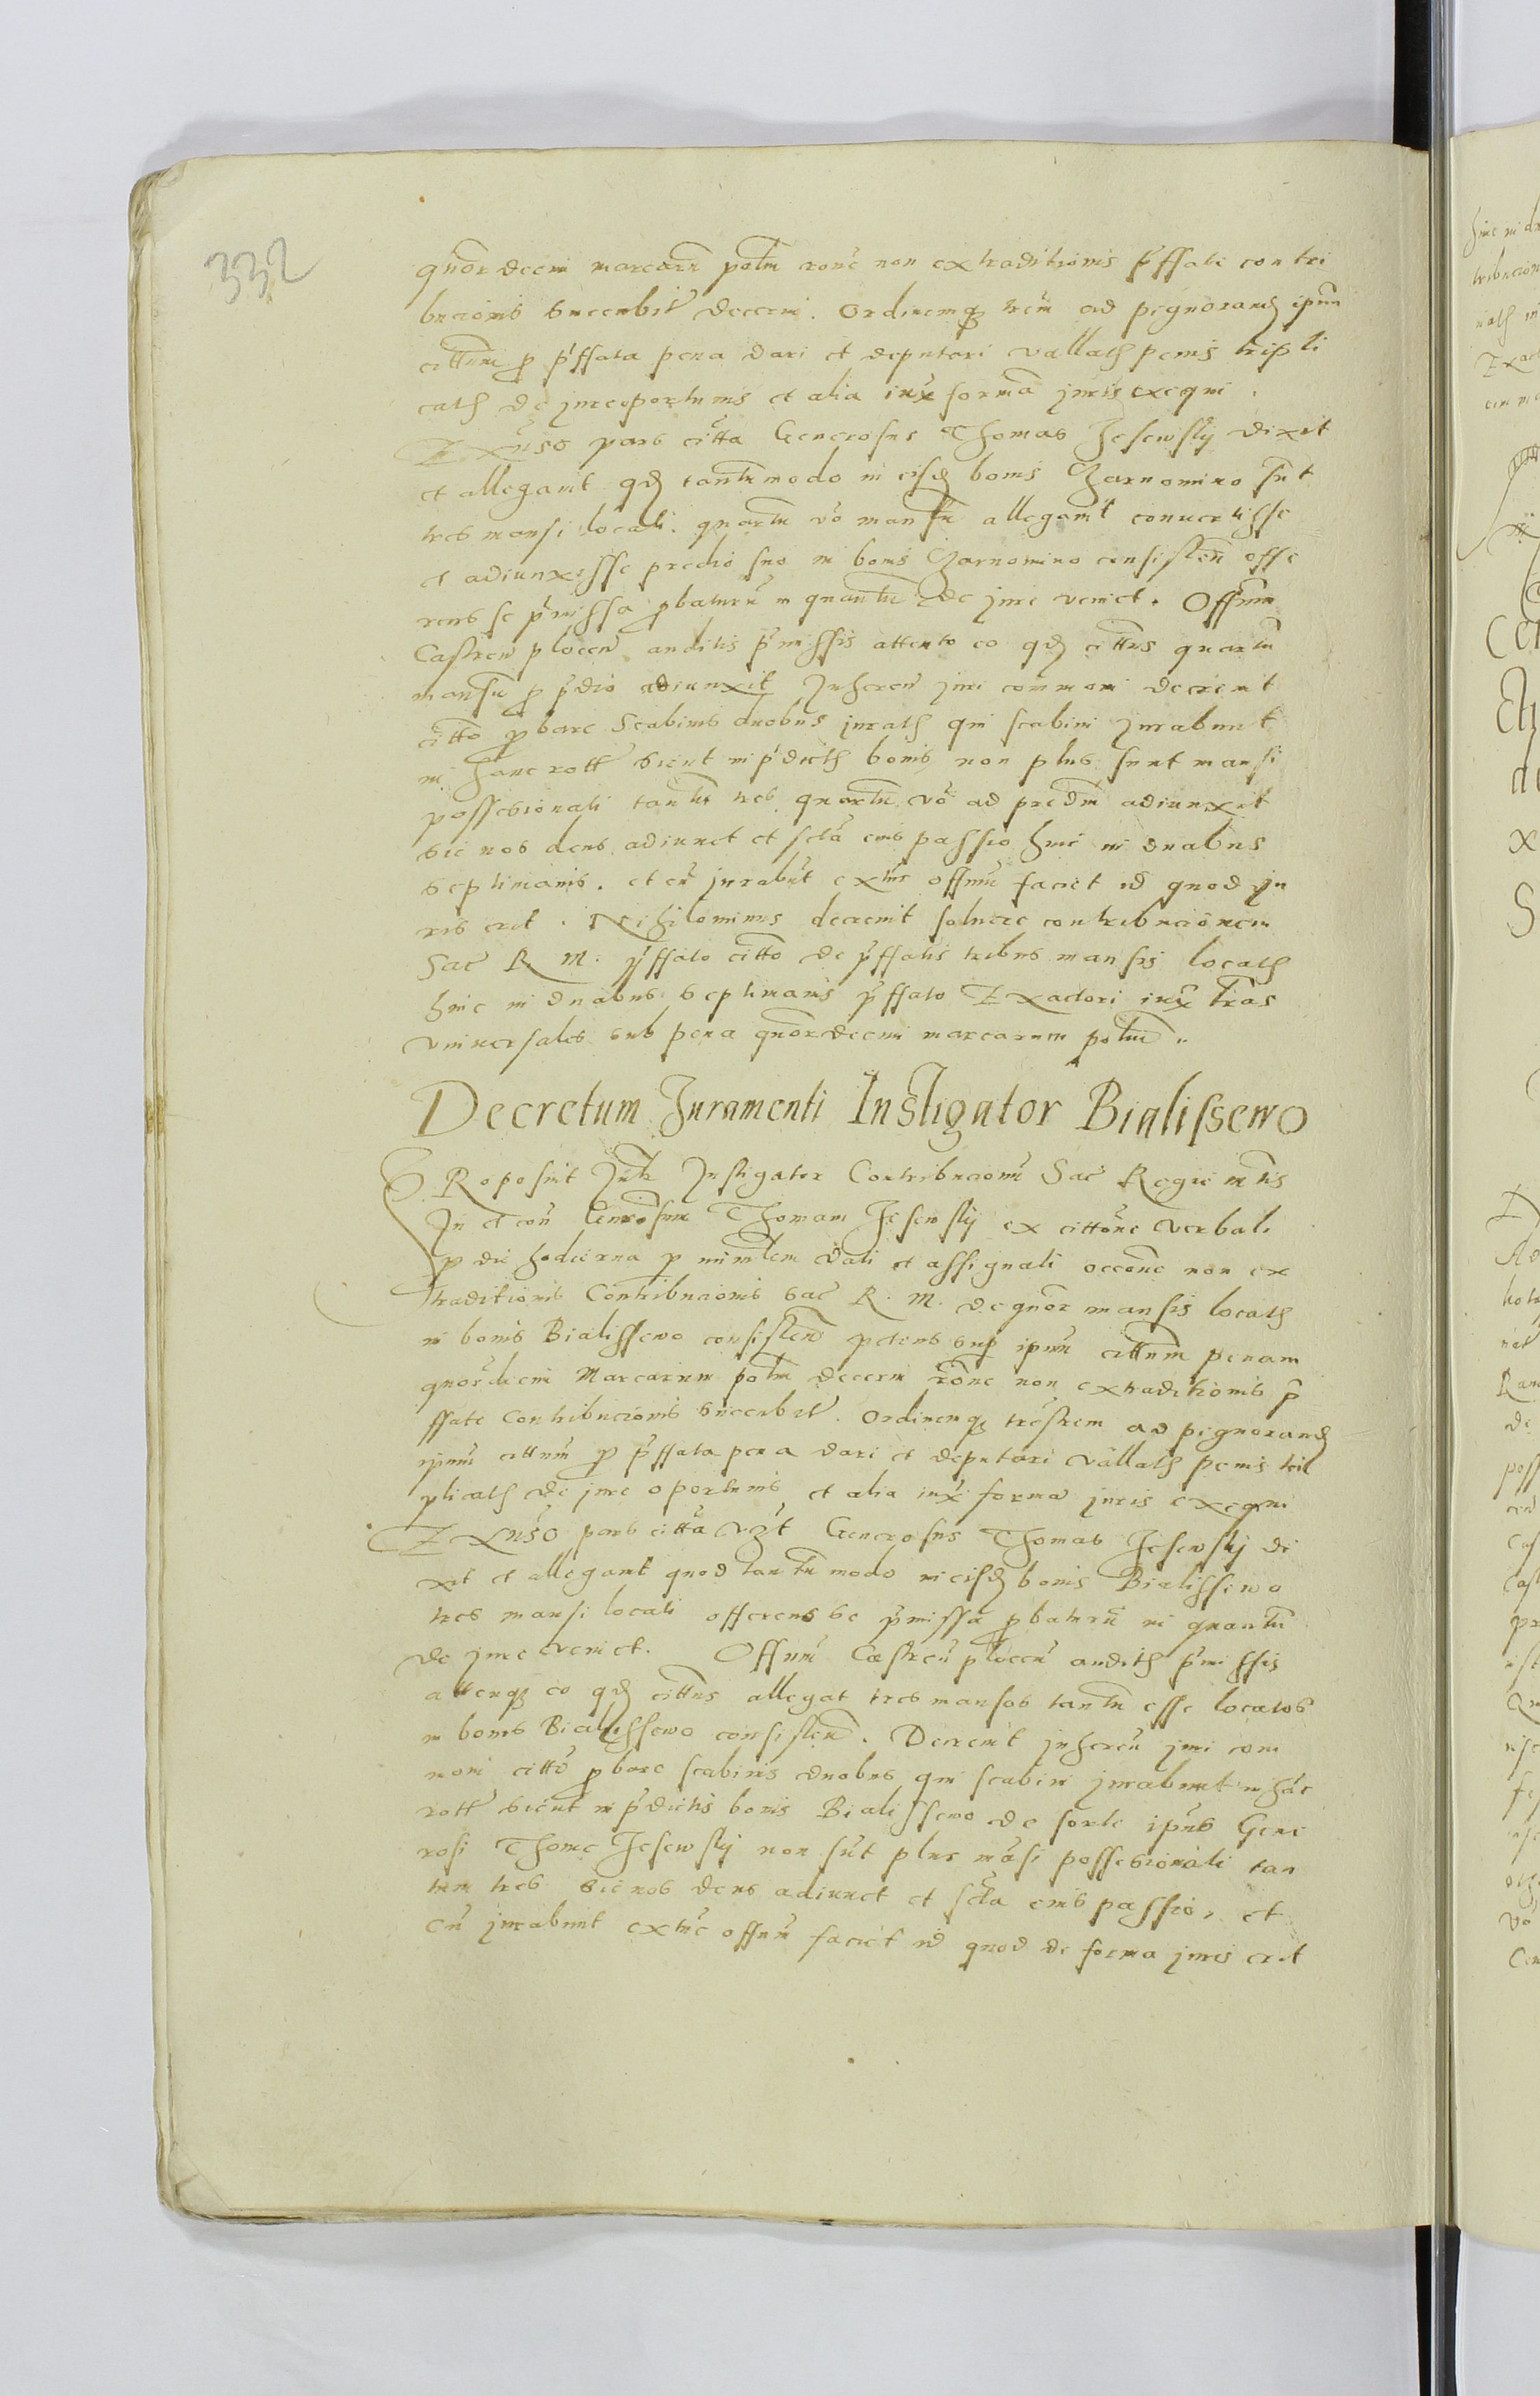 332
quor decim marcaru polm roñe non extraditionis pffate contri
bucionis succubit decerni. Ordinemq trem ad pignorand ipum
cittum p pffata pena dari et deputari vallath penis tripli
cath de jure oportunis et alia iux forma juris exequi.
Exuso pars citta Generosus Thomas Jesewskij dixit
et allegauit qd tantumodo in eisd bonis Zarnomino sut
tres mansi locati. quartu vo mansu allegauit conuertisse
et adiunxisse predio suo in bonis Zarnomino consisten offe
rens se pmissa pbaturu in quantu de jure veniet. Offium
Castren plocen auditis pmissis attento eo qd cittus quartu
mansu p pdio adiunxit Inheren juri communi decreuit
citto pbare Scabinis duobus jurath qui scabini jurabunt
in hanc rott sicut in pdicth bonis non plus sunt mansi
possesionati tantu tres quartu vo ad predm adiunxit
sic nos deus adiuuet et scta eius passio hinc in duabus
septimanis. et cu jurabut extuc offium faciet id quod ju
ris erit. Nihilominus decreuit soluere contribucionem
Sac R M. pffato citto de pffatis tribus mansis locath
hinc in duabus septimanis pffato Exactori iux tras
vniuersales sub pena quordecim marcarum polm.
Decretum Juramenti Instigator Bialissewo
Proposuit Instigator Contribucionu Sac Regie mtis
In et con Generosum Thomam Jesewskij ex cittone verbali
p die hodierna p minrlem dati et assignati occone non ex
traditionis Contribucionis Sac R. M. de quor mansis locath
in bonis Bialissewo consisten petens sup ipum cittum penam
quordecim Marcarum polm decerni rone non extraditionis p
ffate Contribucionis succubit. Ordinemq trestrem ad pignorand
ipum cittum p pffata pena dari et deputari vallath penis tri
plicath de jure oportunis et alia iux forma juris exequi
Exuso pars citta vzt Generosus Thomas Jesewskij di
xit et allegauit quod tantumodo in eisd bonis Bialissewo
tres mansi locati offerens se pmissa pbaturu in quantu
de jure veniet. Offium Castren plocen audith pmissis
attenq eo qd cittus allegat tres mansos tantu esse locatos
in bonis Bialissewo consisten. Decreuit inheren juri com
muni citto pbare scabinis duobus qui scabini jurabunt in hac
rott sicut in pdictis bonis Bialissewo de sorte ipius Gene
rosi Thome Jesewskij non sut plus masi possesionati tan
tum tres sic nos deus adiuuet et scta eius passio, et
cu jurabunt extuc offium faciet id quod de forma juris erit